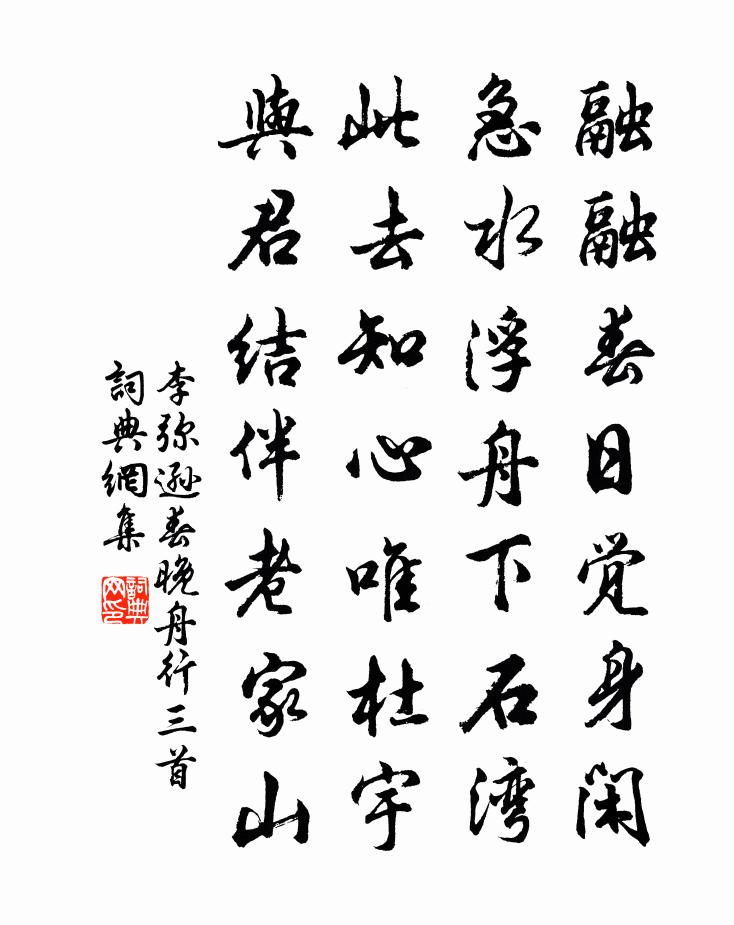 融融春日觉身闲
急水浮舟下石湾
此去知心唯杜宇
與君结伴老家山
李弥遜春晚舟行三首
詞典網集
詞典网印